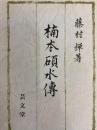 藤村禅著
楠本碩水傳
芸文堂